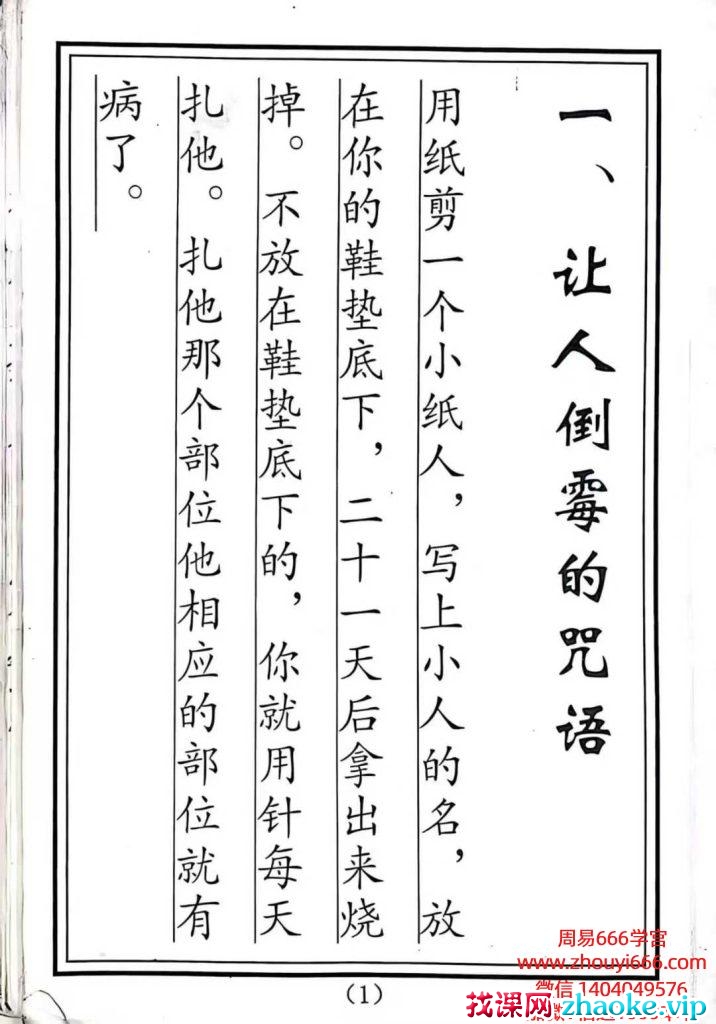 一、让人倒霉的咒语
用纸剪一个小纸人，写上小人的名，放
在你的鞋垫底下，二十一天后拿出来烧
掉。不放在鞋垫底下的，你就用针每天
扎他。扎他那个部位他相应的部位就有
病了。
(1)
周易666学宫
www.zhouyi666.com
微信 1404049576
找课网zhaoke.vip